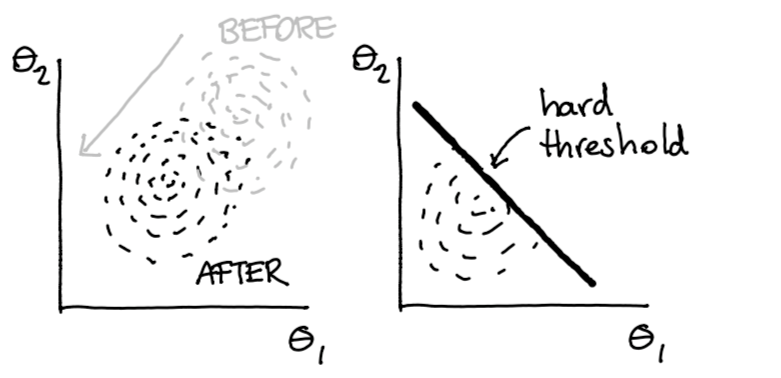 BEFORE
θ₂
AFTER
θ₁
θ₂
hard
threshold
θ₁